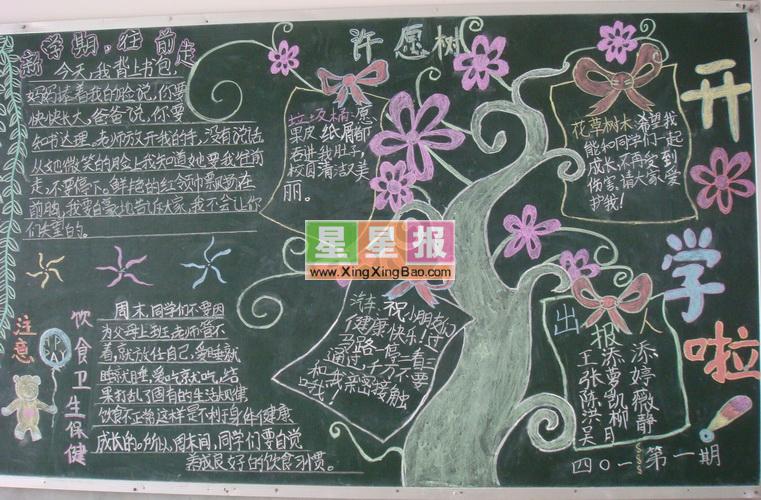 新学期,往前走
今天,我背上书包,
妈妈捧着我的脸说,你要
快快长大,爸爸说,你要
知书达理。老师放开我的手,没有说话,
从她微笑的脸上我知道她要我往前
走,不要停下。鲜艳的红领巾飘扬在
前胸,我要自豪地告诉大家,我不会让你
们失望的。
许愿树
垃圾桶:愿
果皮、纸屑都
吞进我肚子,
校园清洁又美
丽。
花草树木:希望我
能和同学们一起
成长,不再受到
伤害,请大家爱
护我!
开
学
啦
星星报
www.XingXingBao.com
注意
饮食卫生保健
周末,同学们不要因
为父母上班,老师管不
着,就放任自己,爱睡就
睡就睡,爱吃就吃,结
果打乱了固有的生活规律
饮食不正常这样是不利于身体健康
成长的。所以周末间,同学们要自觉
养成良好的饮食习惯。
汽车:祝小朋友们
健康快乐!过
马路一停二看三
通过,千万不要
和我亲密接触
哦!
出报人
王添添
张萝婷
陈凯薇
洪柳静
吴月
四〇一 第一期